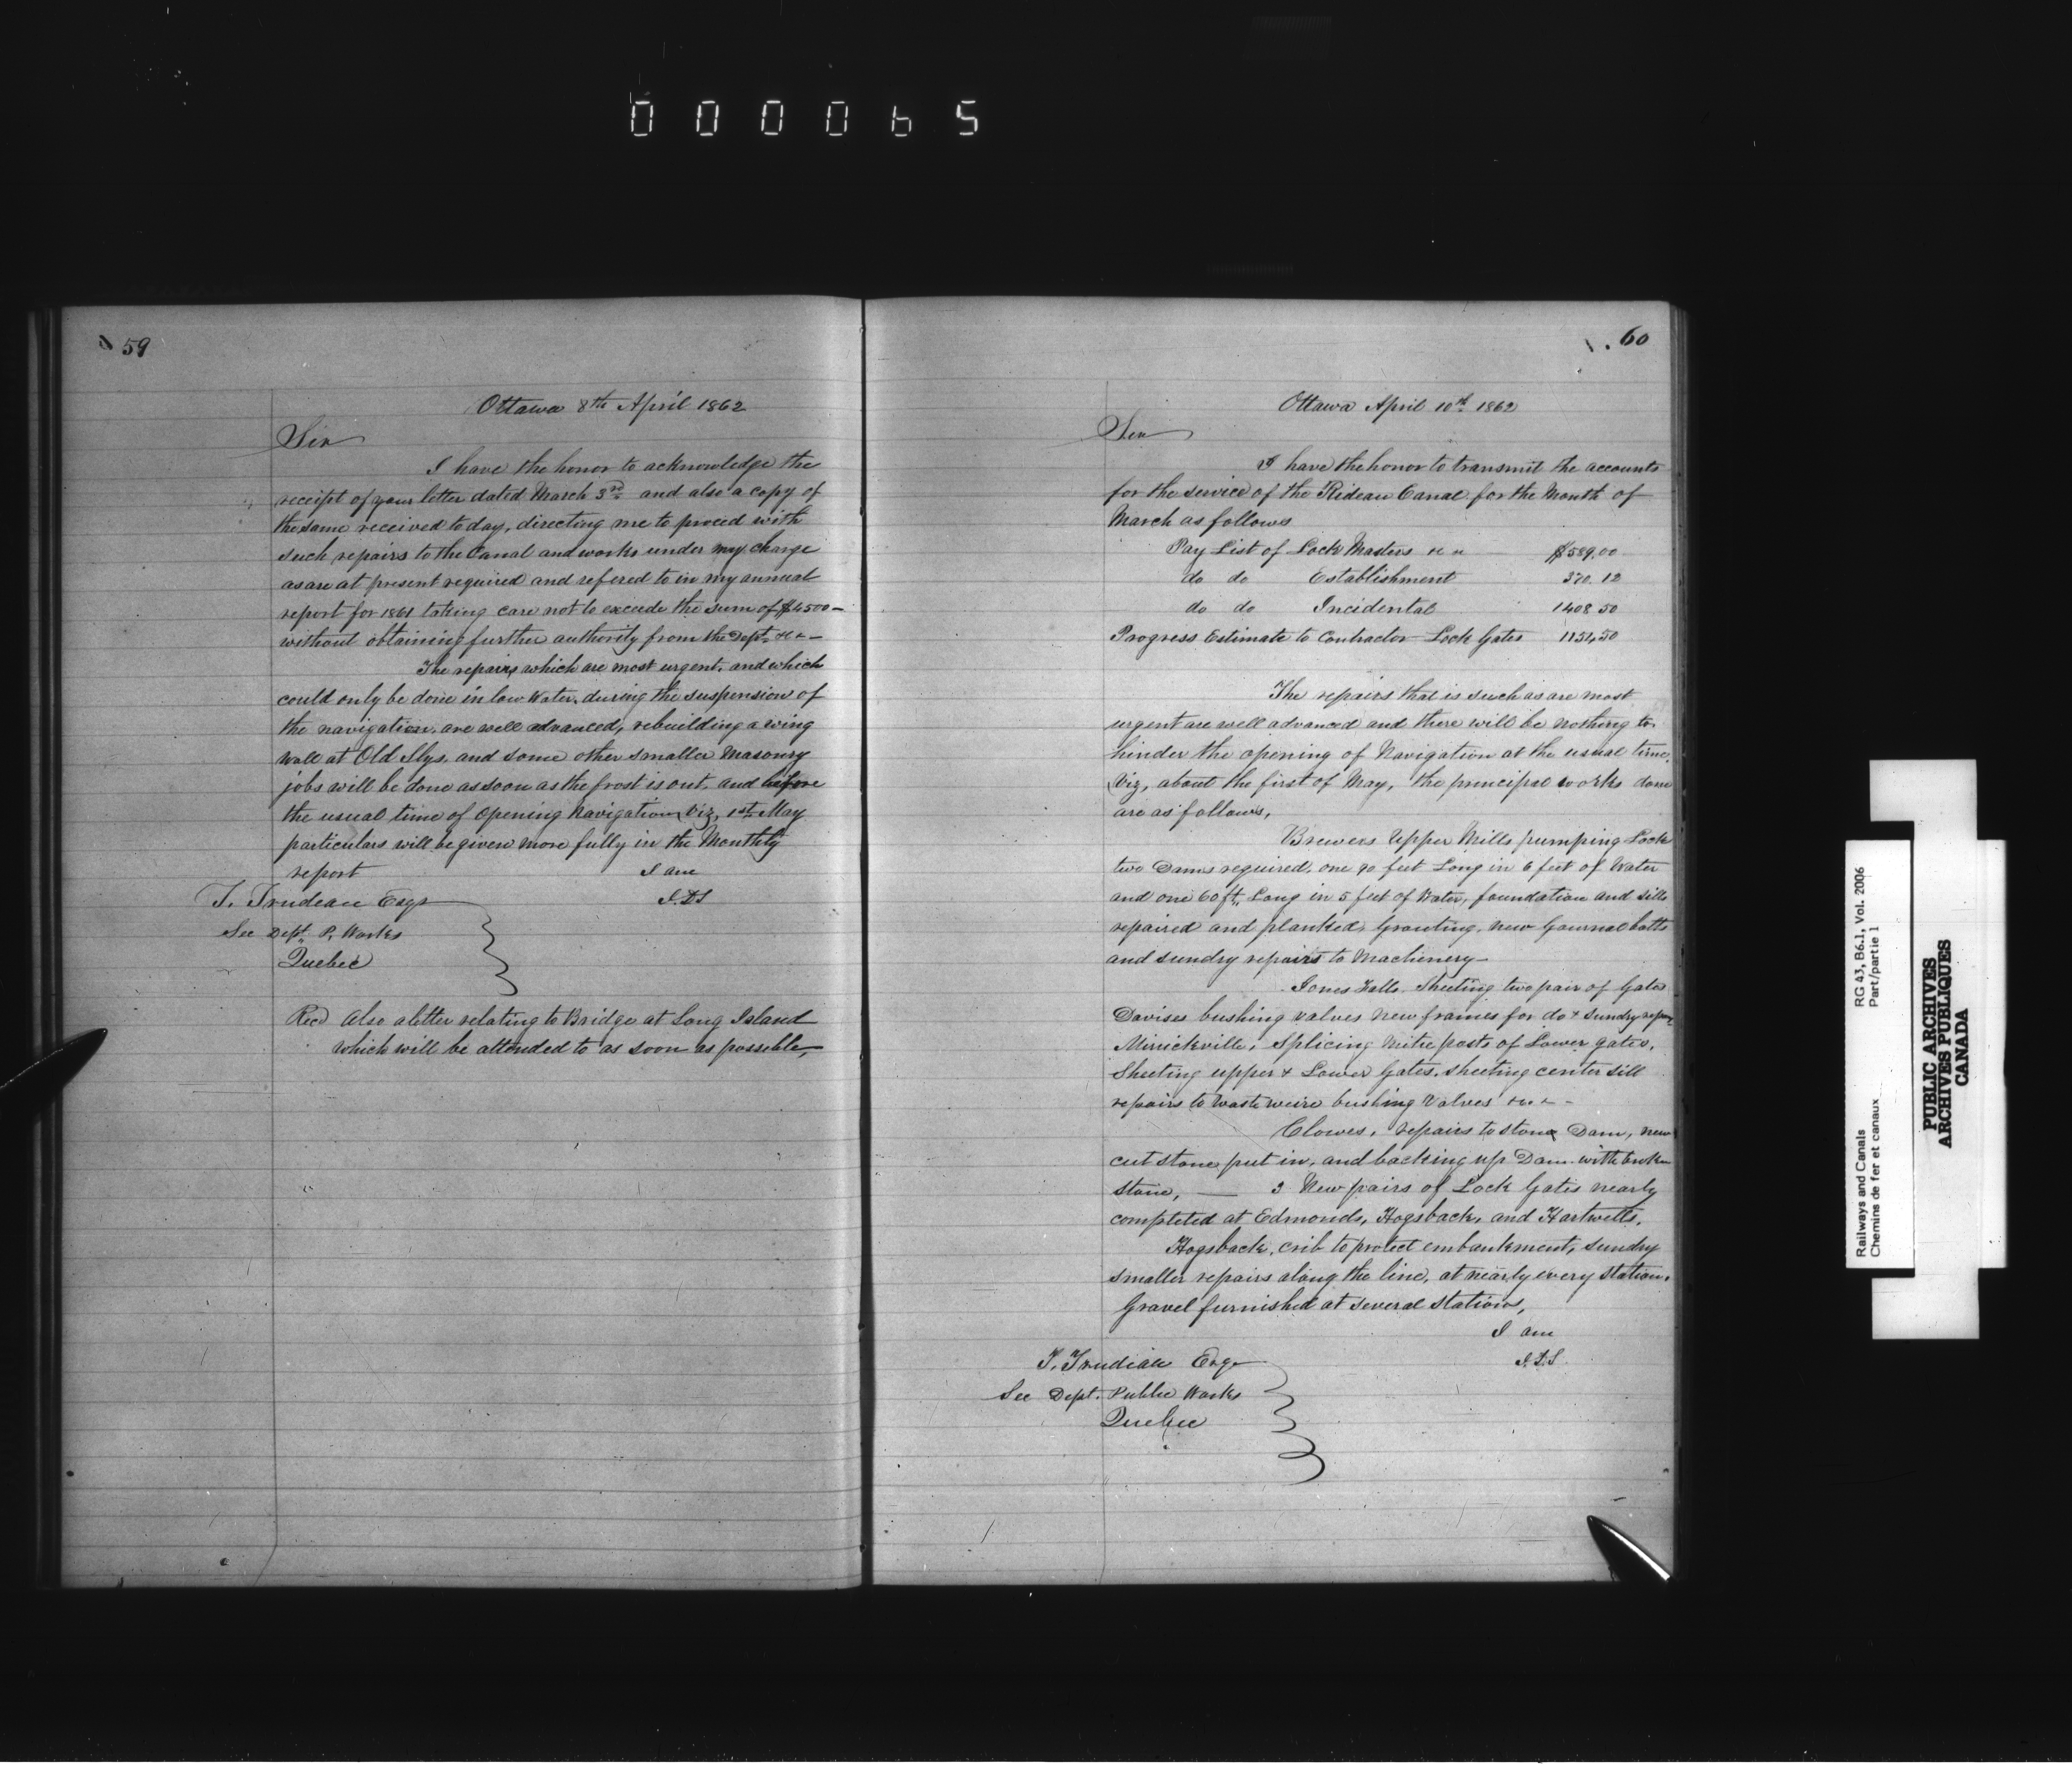 000065
59
Ottawa 8th April 1862
Sir
I have the honor to acknowledge the
receipt of your letter dated March 3rd and also a copy of
the same received today, directing me to proceed with
such repairs to the Canal and works under my charge
as are at present required and refered to in my annual
report for 1861 taking care not to exceede the sum of $4500 —
without obtaining further authority from the Dept. &c —
The repairs which are most urgent, and which
could only be done in low Water, during the suspension of
the navigation, are well advanced, rebuilding a wing
wall at Old Slys, and some other smaller Masonry
jobs will be done as soon as the frost is out, and before
the usual time of Opening Navigation, Viz, 1st May
particulars will be given more fully in the Monthly
report I am
T. Trudeau Esqr
Sec Dept. P. Works
Quebec
Recd Also a letter relating to Bridge at Long Island
which will be attended to as soon as possible,
60
Ottawa April 10th 1862
Sir
I have the honor to transmit the accounts
for the service of the Rideau Canal for the Month of
March as follows
Pay List of Lock Masters $589.00
do do Establishment 370.12
do do Incidental 1408.50
Progress Estimate to Contractor Lock Gates 1154,50
The repairs that is such as are most
urgent are well advanced and there will be nothing to
hinder the opening of Navigation at the usual time,
Viz, about the first of May, the principal works done
are as follows,
Brewers Upper Mills pumping Lock
two Dams required, one 90 feet Long in 6 feet of Water
and one 60 ft, Long in 5 feet of Water, foundation and sills
repaired and planked, Grouting, new Gournal bolts
and sundry repairs to Machinery —
Jones Falls Sheeting two pair of Gates
Davises bushing valves new frames for do & sundry
Mirickville, Splicing Mitre posts of Lower gates,
Sheeting upper & Lower Gates, sheeting center sill
repairs to Waste weire bushing Valves &c —
Clowes, repairs to stone Dam, new
cut stone put in, and backing up Dam with broken
stone, — 3 New pairs of Lock Gates nearly
completed at Edmonds, Hogsback, and Hartwells,
Hogsback, crib to protect embankment, sundry
smaller repairs along the line, at nearly every station,
Gravel furnished at several stations,
I am
T. Trudeau Esqr
Sec Dept. Public Works
Quebec
Railways and Canals RG 43, B6.1, Vol. 2006
Chemins de fer et canaux Part/partie 1
PUBLIC ARCHIVES
ARCHIVES PUBLIQUES
CANADA